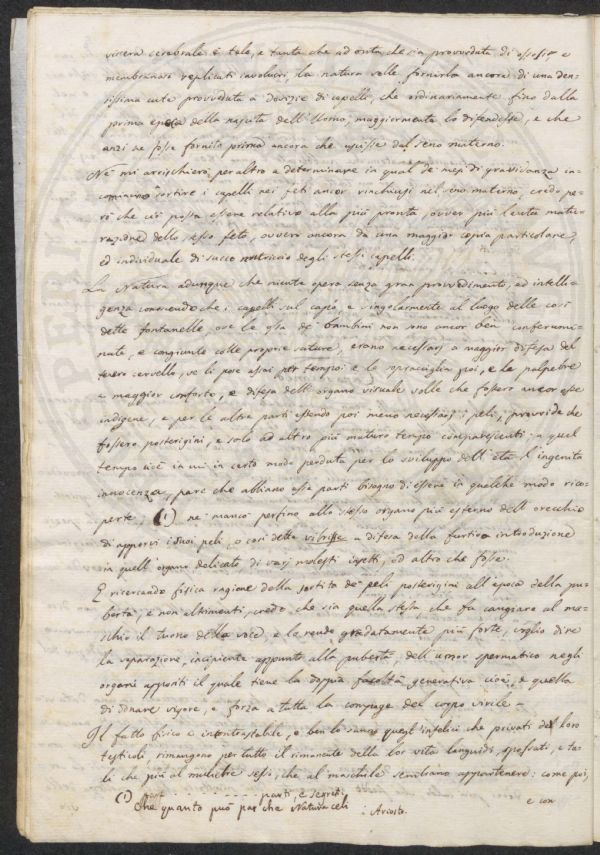 viscera cerebrale è tale, e tanta che ad onta che sia provveduta di ossosi, e
membranosi replicati involucri, la natura volle fornirla ancora di una den-
sissima cute provveduta a dovizie di capelli, che ordinariamente fino dalla
prima epoca della nascita dell'Uomo, maggiormente lo difendesse, e che
anzi ne fosse fornito prima ancora che uscisse dal seno materno.
Nè mi arrischierò peraltro a determinare in qual de' mesi di gravidanza in-
comincino sortire i capelli nei feti ancor rinchiusi nel seno materno, credo pe-
rò che ciò possa essere relativo alla più pronta, ovver più lenta matu-
razione dello stesso feto, ovvero ancora da una maggior copia particolare,
ed individuale di succo nutriccio degli stessi capelli.
La Natura adunque che niente opera senza gran provvedimenti, ed intelli-
genza conoscendo che i capelli sul capo, e singolarmente al luogo delle così
dette fontanelle, ove le ossa de' bambini non sono ancor ben confermi-
nate, e congiunte colle proprie suture, erano necessarj a maggior difesa del
tenero cervello, ve li pose assai per tempo: e le sopraciglia poi, e le palpebre
a maggior conforto, e difesa dell'organo visuale volle che fossero ancor esse
indigene, e per le altre parti essendo poi meno necessarj i peli, provvide che
fossero posterigini, e solo ad altro più maturo tempo comparescenti: a quel
tempo cioè in cui in certo modo perduta per lo sviluppo dell'età l'ingenita
innocenza, pare che abbiano esse parti bisogno di essere in qualche modo rico-
perte, (1) nè mancò perfino allo stesso organo più esterno dell'orecchio
di apporvi i suoi peli, o così dette vibrisse a difesa della furtiva introduzione
in quell'organo delicato di varj molesti insetti, od altro che fosse.
E ricercando fisica ragione della sortita de' peli posterigini all'epoca della pu-
bertà, e non altrimenti, credo, che sia quella stessa che fa cangiare al ma-
schio il tuono della voce, e la rende gradatamente più forte, voglio dire
la separazione, incipiente appunto alla pubertà, dell'umor spermatico negli
organi appositi il quale tiene la doppia facoltà generativa cioè, e quella
di donare vigore, e forza a tutta la compage del corpo virile.-
Il fatto fisico è incontrastabile, e ben lo sanno quegl'infelici che privati del loro
testicoli, rimangono per tutto il rimanente della lor vita languidi, spossati, e ta-
li che più al muliebre sesso, che al maschile sembrano appartenere: come poi,
(1) parti, e segreti
Che quanto può par che Natura celi
: Ariosto.
e con